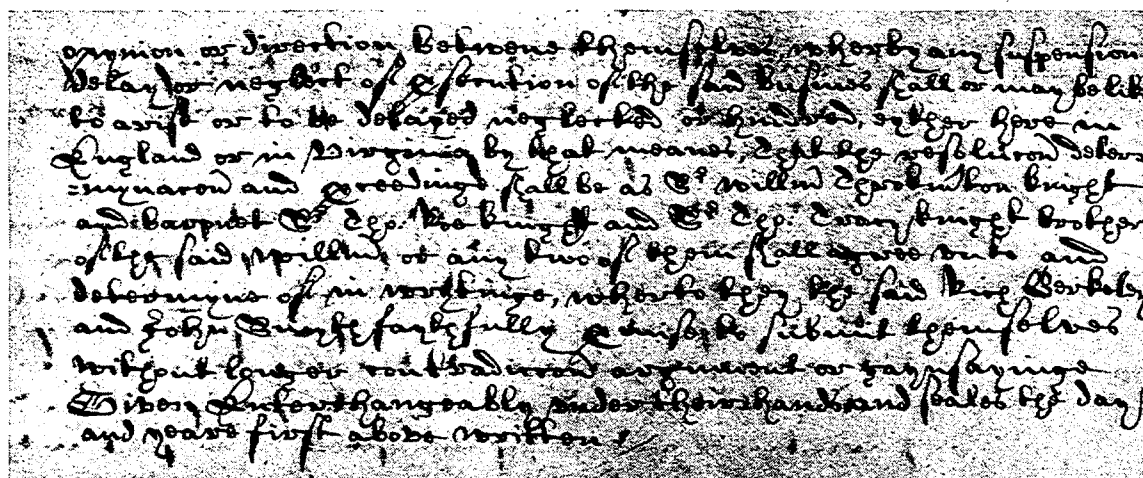 opynion or direction betwene themselves wherby any suspension
delay or neglect of execution of the said busines shall or may be like
to arise or to be delayed neglected or hyndred, eyther here in
England or in Virginia by that meanes, That the resolucon deter
=mynacon and proceedinge shall be as Sr Willm Throkm'ton knight
and baronet Sr Tho. Roe knight and Sr Tho. Tracy knight brother
of the said Willm or any two of them shall agree unto and
determyne of in wrytinge, wherto they the said Rich Berkeley
and John Smyth faythfully promise to submit themselves
without longer contradiccon argument or gaynsayinge
Given Enterchangeably under their hands and seales the day
and yeare first above written